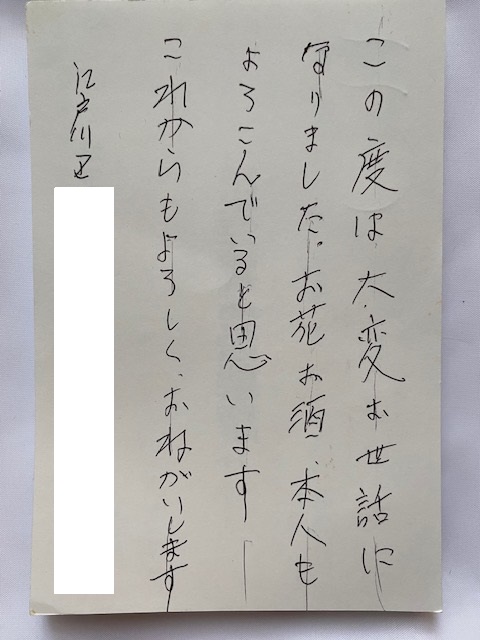 この度は大変お世話に
なりました。お花お酒、本人も
よろこんでいると思います
これからもよろしく、おねがいします
江戸川区